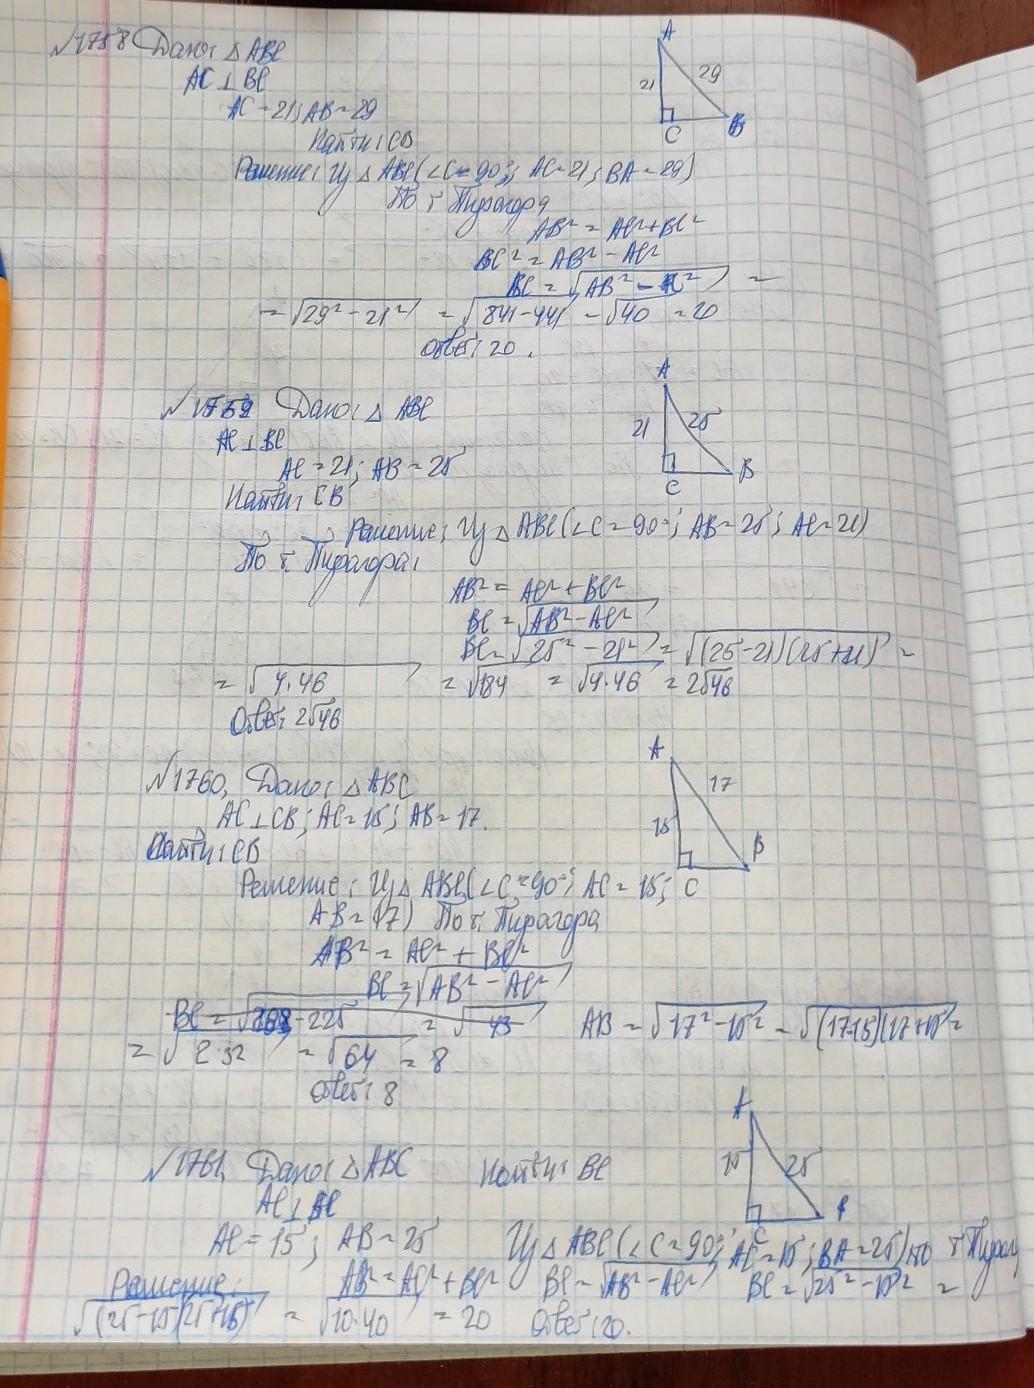 №1758 Дано: △ ABC
AC ⊥ BC
AC = 21; AB = 29
Найти: CB
A
21
29
C
B
Решение: Из △ ABC (∠C = 90°; AC = 21; BA = 29)
По т. Пифагора
AB² = AC² + BC²
BC² = AB² - AC²
BC = √(AB² - AC²) =
= √(29² - 21²) = √(841 - 441) = √40 = 20
Ответ: 20.
№1759 Дано: △ ABC
AC ⊥ BC
AC = 21; AB = 25
Найти: CB
A
21
25
C
B
Решение: Из △ ABC (∠C = 90°; AB = 25; AC = 21)
По т. Пифагора:
AB² = AC² + BC²
BC = √(AB² - AC²)
BC = √(25² - 21²) = √((25-21)(25+21)) =
= √(4·46) = √184 = √(4·46) = 2√46
Ответ: 2√46
№1760, Дано: △ ABC
AC ⊥ CB; AC = 15; AB = 17.
Найти: CB
A
17
15
B
C
Решение: Из △ ABC (∠C = 90°; AC = 15;
AB = 17) По т. Пифагора
AB² = AC² + BC²
BC = √(AB² - AC²)
AB = √(17² - 15²) = √((17-15)(17+15)) =
= √(2·32) = √64 = 8
Ответ: 8
№1761, Дано: △ ABC Найти: BC
AC ⊥ BC
A
15
25
C
B
AC = 15; AB = 25 Из △ ABC (∠C = 90°; AC = 15; BA = 25) по т Пифаг
Решение: AB² = AC² + BC² BC = √(AB² - AC²) BC = √(25² - 15²) =
√((25-15)(25+15)) = √(10·40) = 20 Ответ: 20.